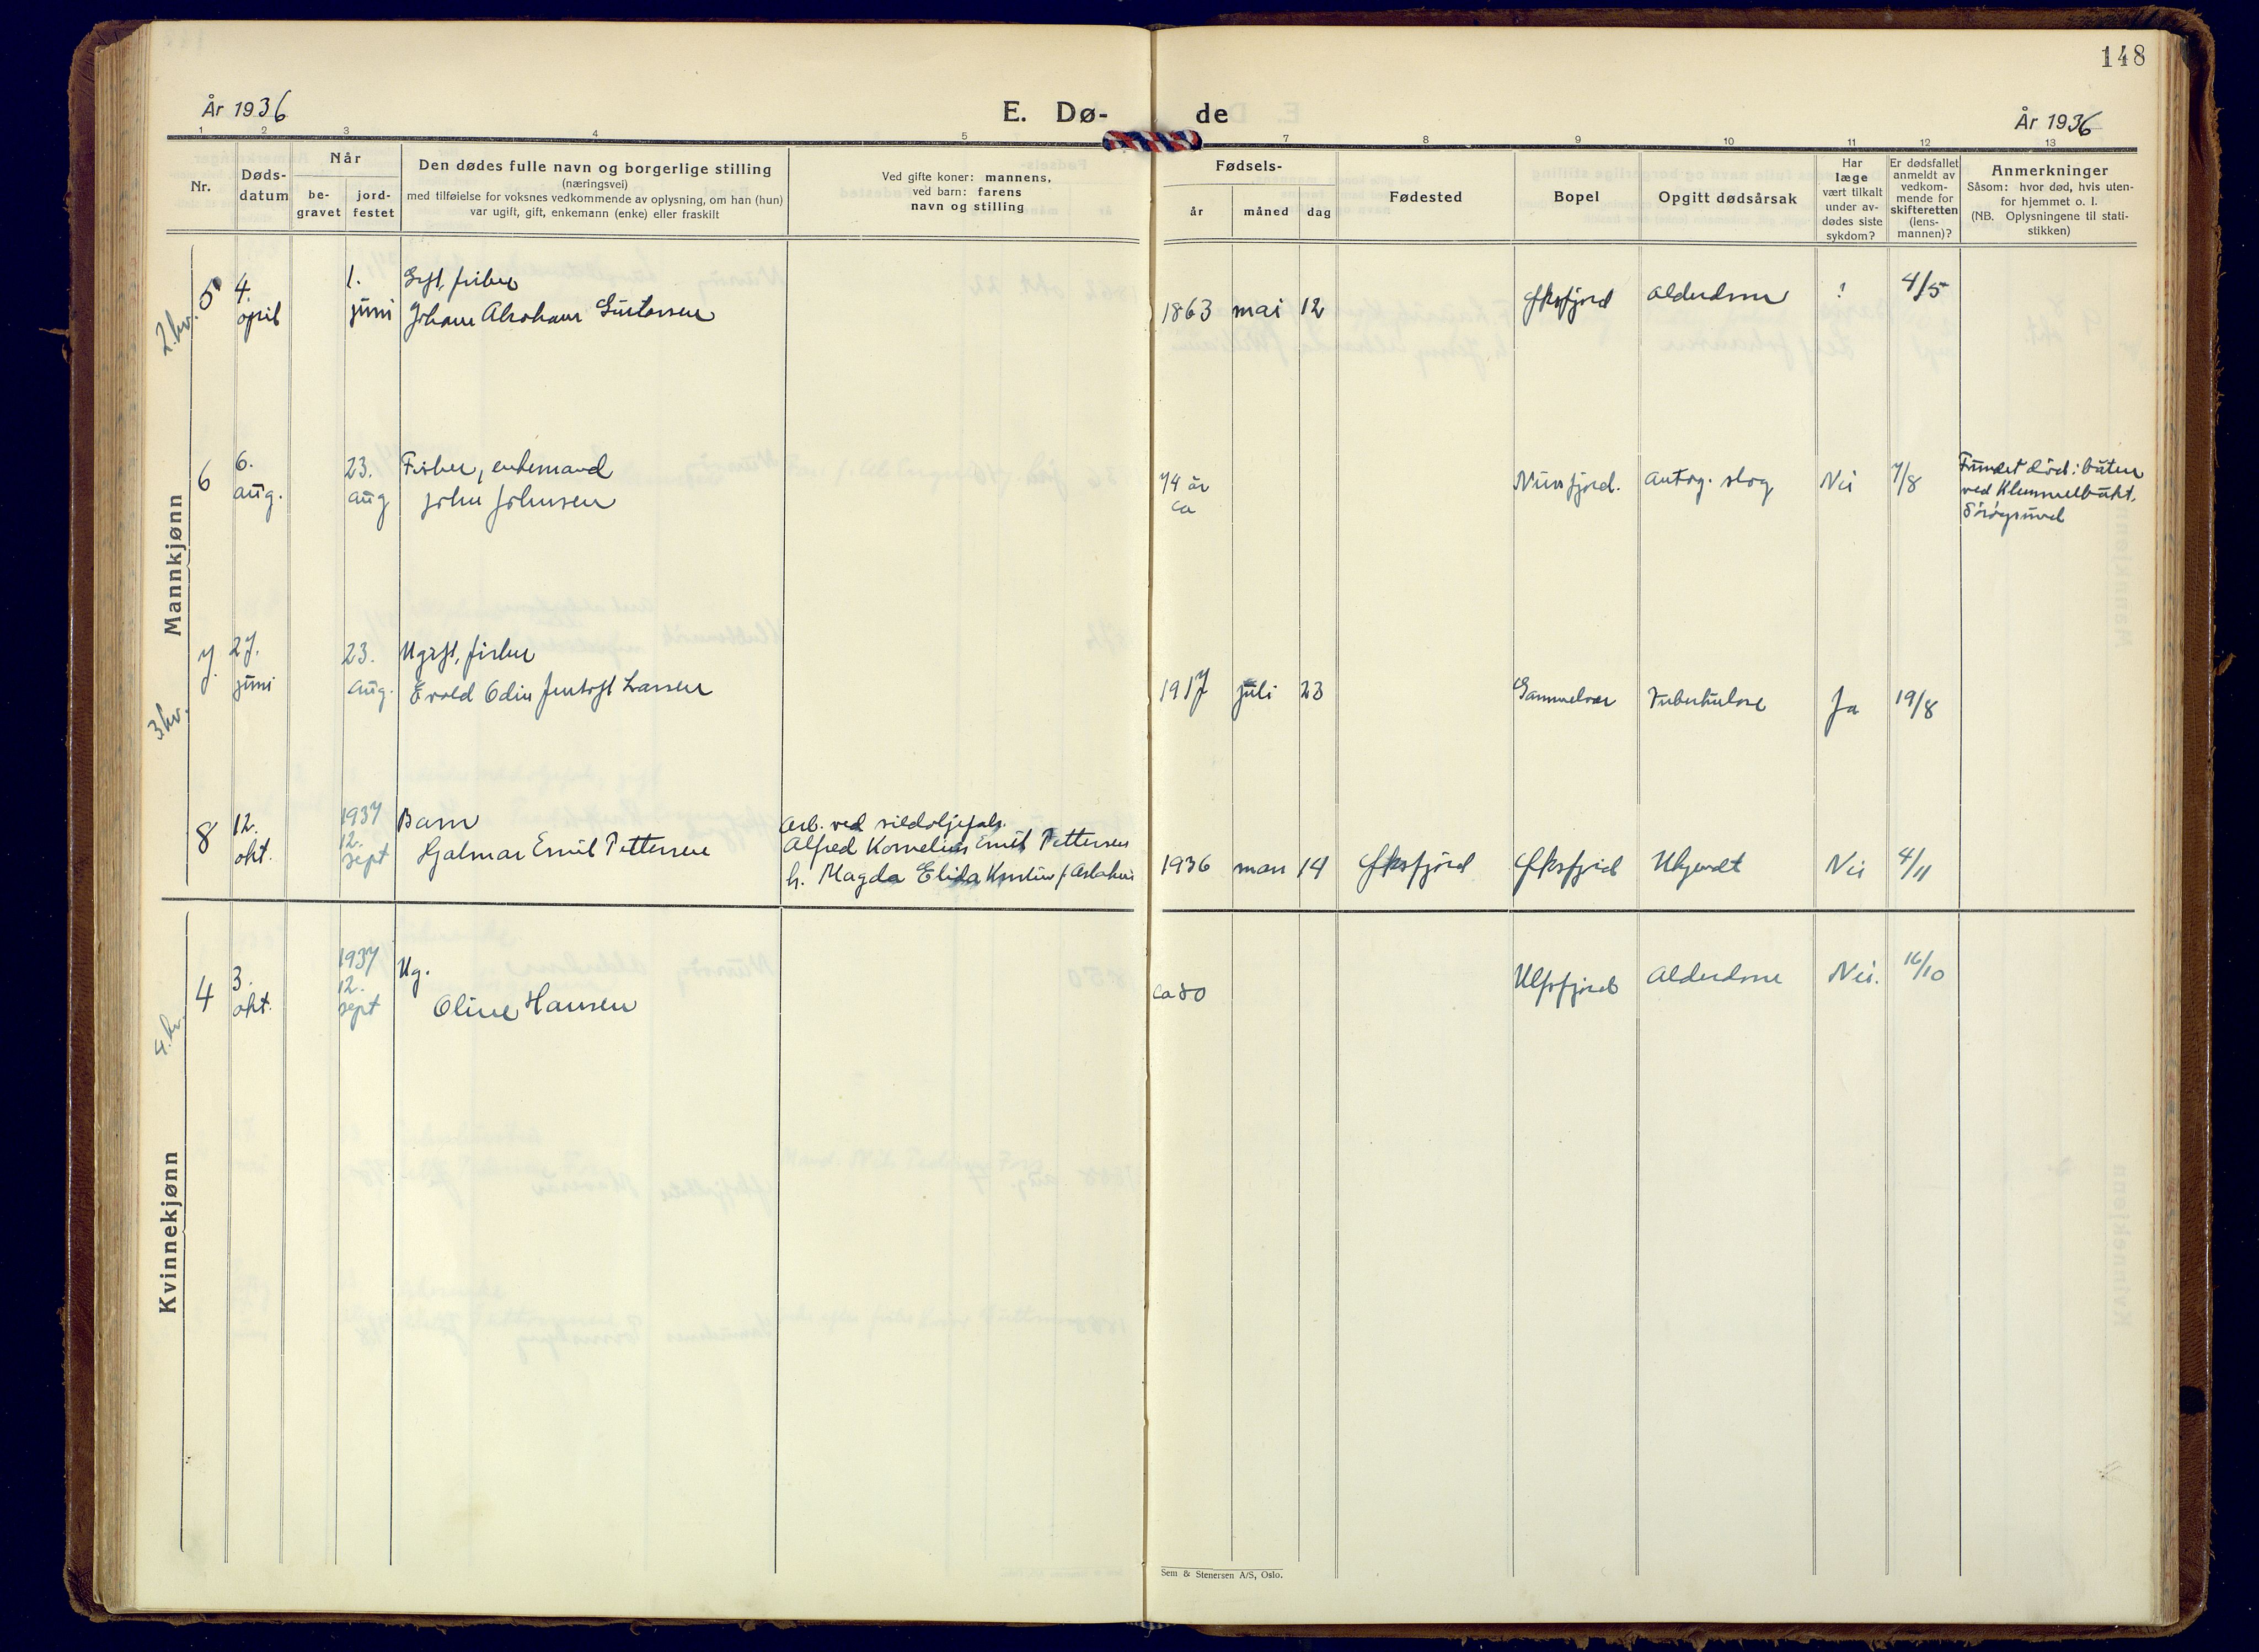 148
År 1936
E. Dø-
de
År 1936
1 2 3 4 5
7 8 9 10 11 12 13
Nr.
Døds-
datum
Når
be-
gravet
jord-
festet
Den dødes fulle navn og borgerlige stilling
(næringsvei)
med tilføielse for voksnes vedkommende av oplysning, om han (hun)
var ugift, gift, enkemann (enke) eller fraskilt
Ved gifte koner: mannens,
ved barn: farens
navn og stilling
Fødsels-
år
måned
dag
Fødested
Bopel
Opgitt dødsårsak
Har
læge
vært tilkalt
under av-
dødes siste
sykdom?
Er dødsfallet
anmeldt av
vedkom-
mende for
skifteretten
(lens-
mannen)?
Anmerkninger
Såsom: hvor død, hvis uten-
for hjemmet o. l.
(NB. Oplysningene til stati-
stikken)
Mannkjønn
2. kv.
5 4. april
1. juni
Gift, fisker
Johan Abraham Gustavsen
1863 mai 12
Øksfjord
Alderdom
?
4/5
6 6. aug.
23. aug
Fisker, enkemand
John Johnsen
74 år
ca
Nuvsfjord.
Antag. slag
Nei
7/8
Fundet død i båten
ved Klemmelbukt,
Sörøysund
3 kv.
7. 27. juni
23. aug.
Ugift, fisker
Evald Odin Jentoft Larsen
1917 juli 23
Gammelvær
Tuberkulose
Ja
19/8
8 12. okt.
1937
12.
sept
Barn
Hjalmar Emil Pettersen
Arb. ved sildoljefabr.
Alfred Kornelius Emil Pettersen
h. Magda Elida
1936 mars 14
Øksfjord
Øksfjord
Ukjendt
Nei
4/11
Kvinnekjønn
4. kv.
4 3. okt.
1937
12.
sept
Ug.
Oline Hansen
ca 80
Ulfsfjord
Alderdom
Nei.
16/10
Sem & Stenersen A/S, Oslo.